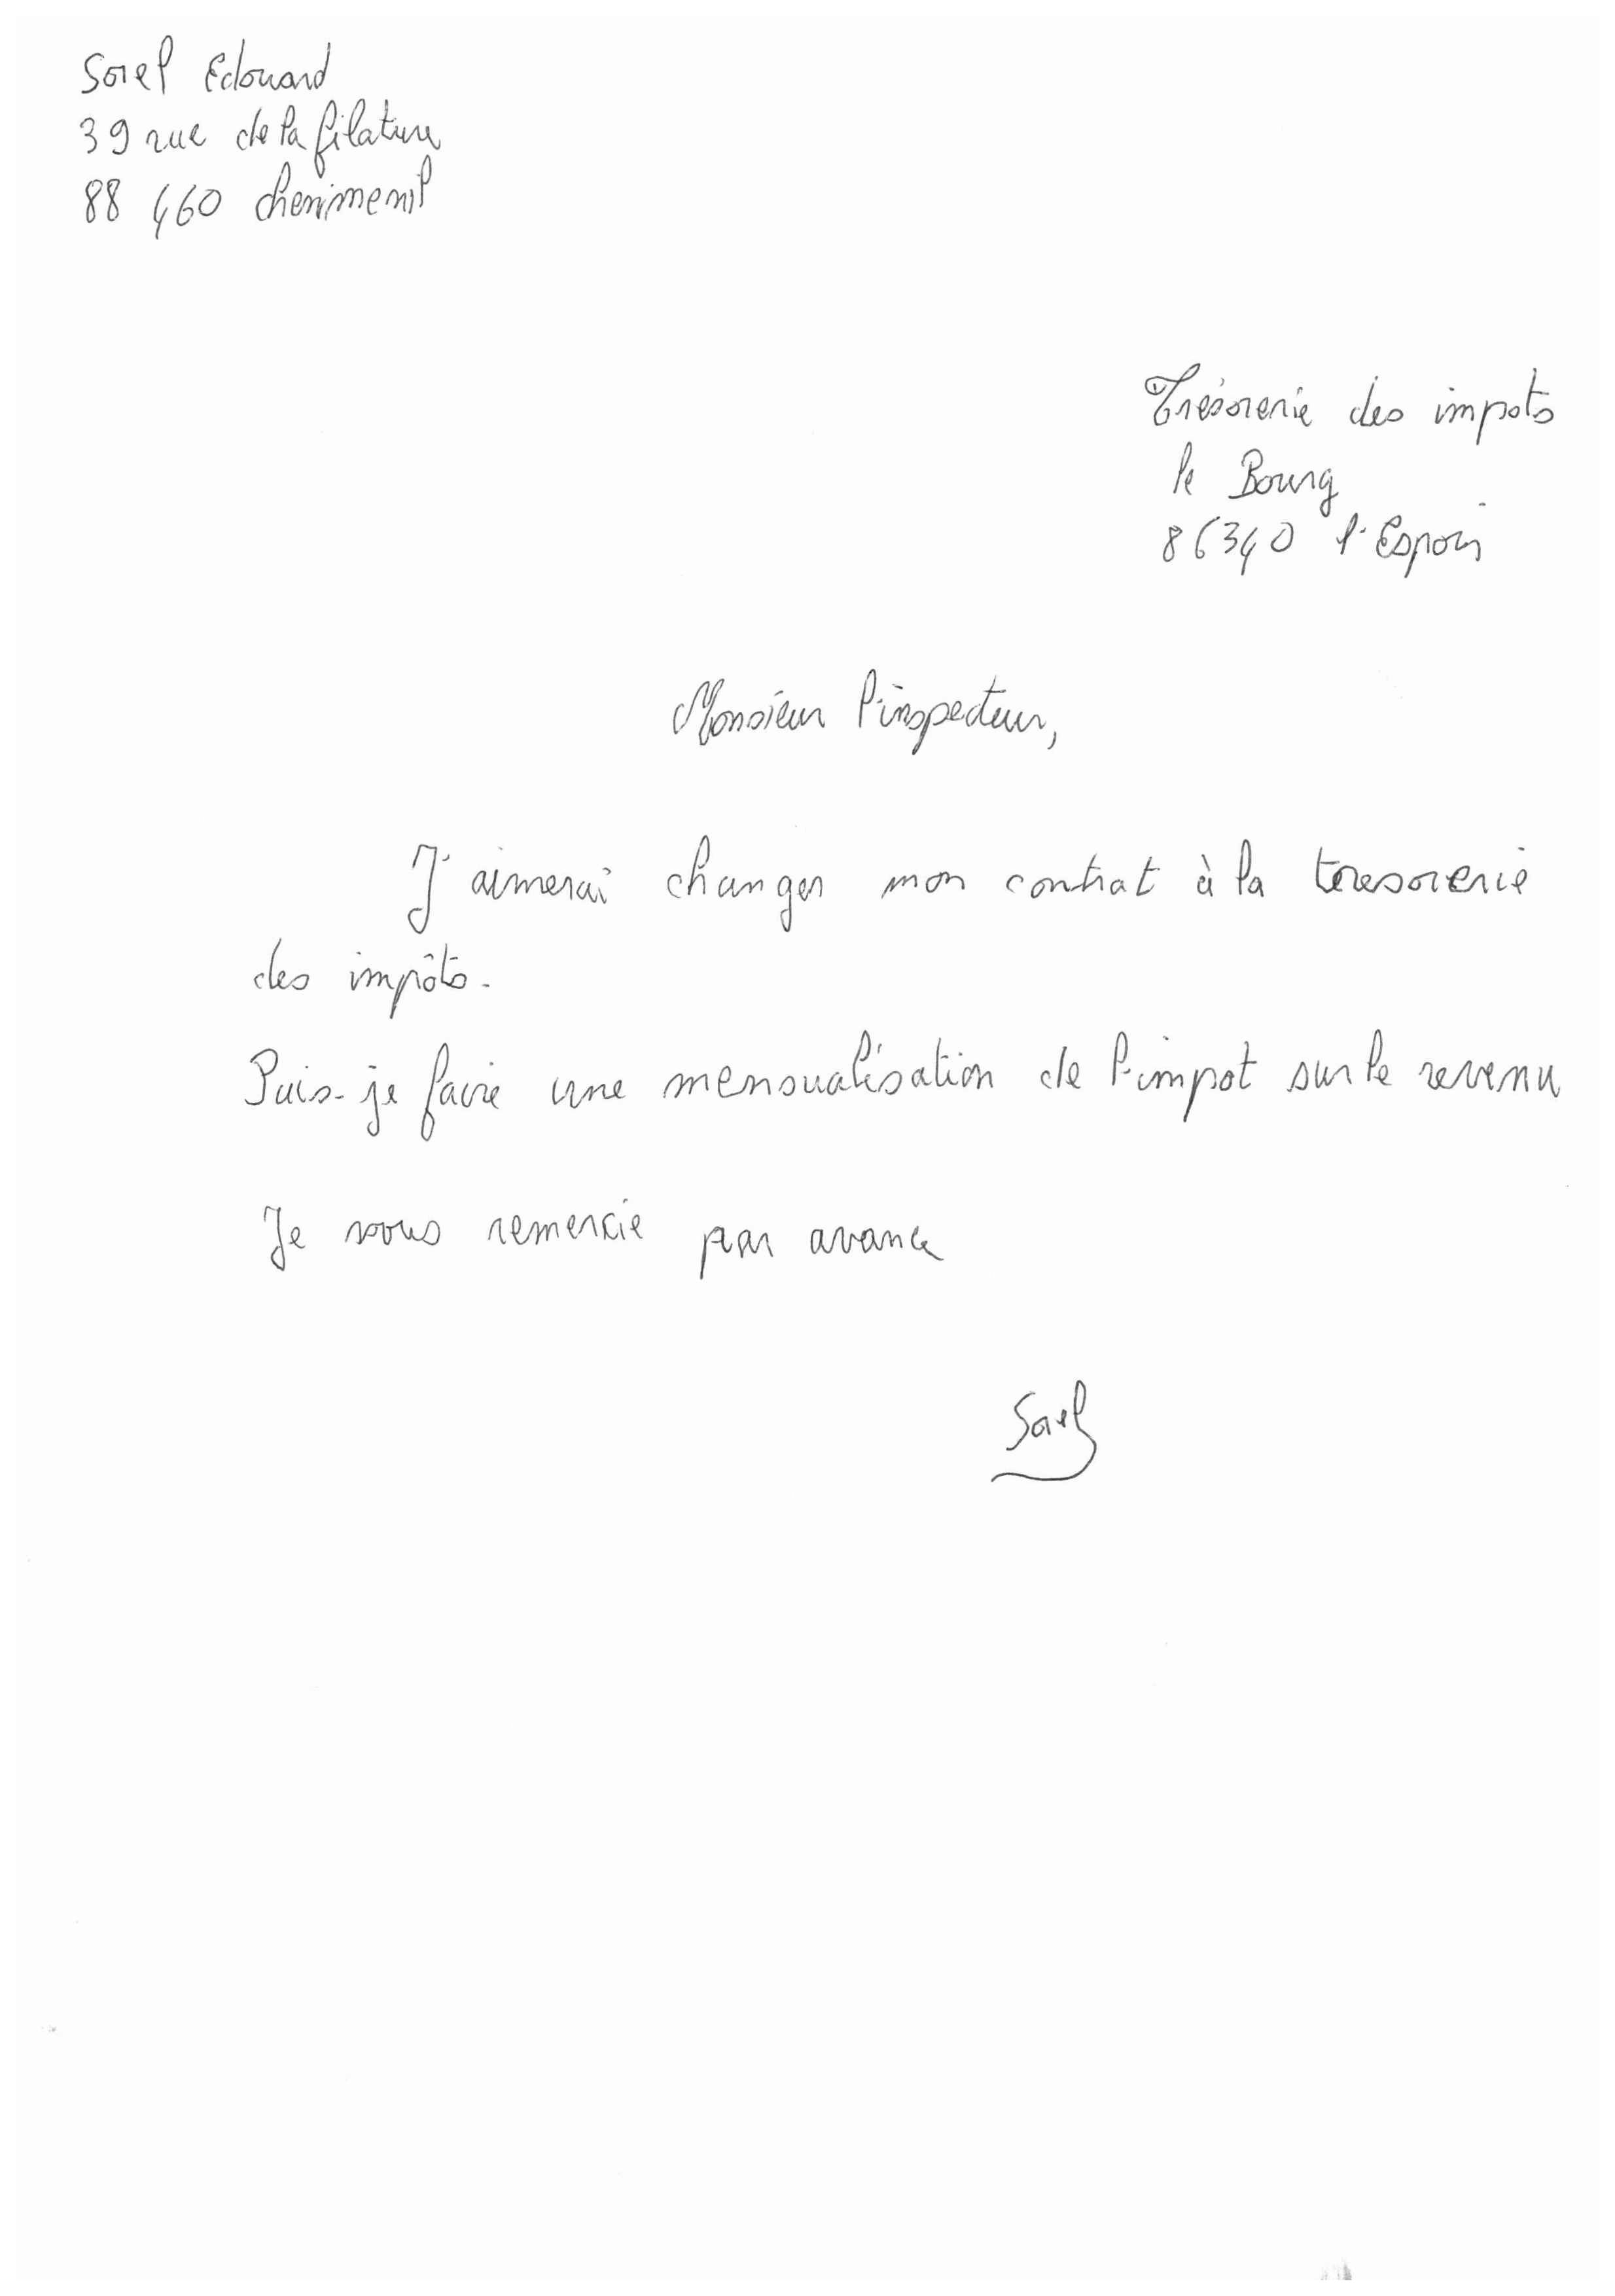 Sorel Edouard
39 rue de la filature
88 460 chenimenil
Trésorerie des impots
le Bourg
86340 l'Espoir
Monsieur l'inspecteur,
J'aimerai changer mon contrat à la tresorerie
des impôts.
Puis-je faire une mensualisation de l'impot sur le revenu
Je vous remercie par avance
Sorel